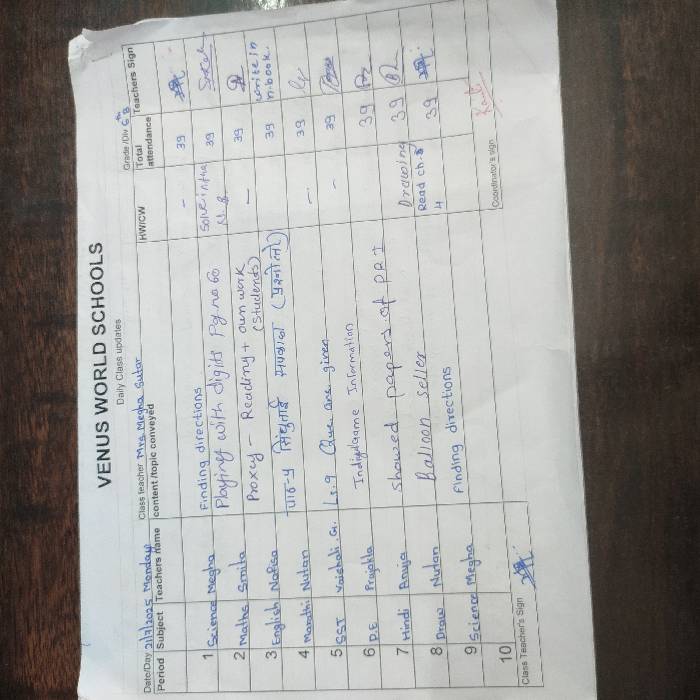 VENUS WORLD SCHOOLS
Daily Class updates
Date/Day 21/7/2025 Monday Class teacher Mrs. Megha Sutar Grade/Div 6th B
Period Subject Teachers name content/topic conveyed HW/CW Total attendance Teachers Sign
1 Science Megha Finding directions - 39
2 Maths Smita Playing with digits Pg no 60 Solve in the N.B. 39
3 English Nafisa Proxy - Reading + own work (Students) - 39
4 Marathi Nutan पाठ-५ सिंधुताई सपकाळ (प्रश्नोत्तरे) 39 write in n.book.
5 SST Vaishali Ls.9 Que ans. given - 39
6 P.E Prajakta Indi game Information - 39
7 Hindi Anuja showed papers of PRT 39
8 Draw Nutan Balloon seller Drawing 39
9 Science Megha Finding directions Read ch. 4 39
10
Class Teacher's Sign
Coordinator's sign